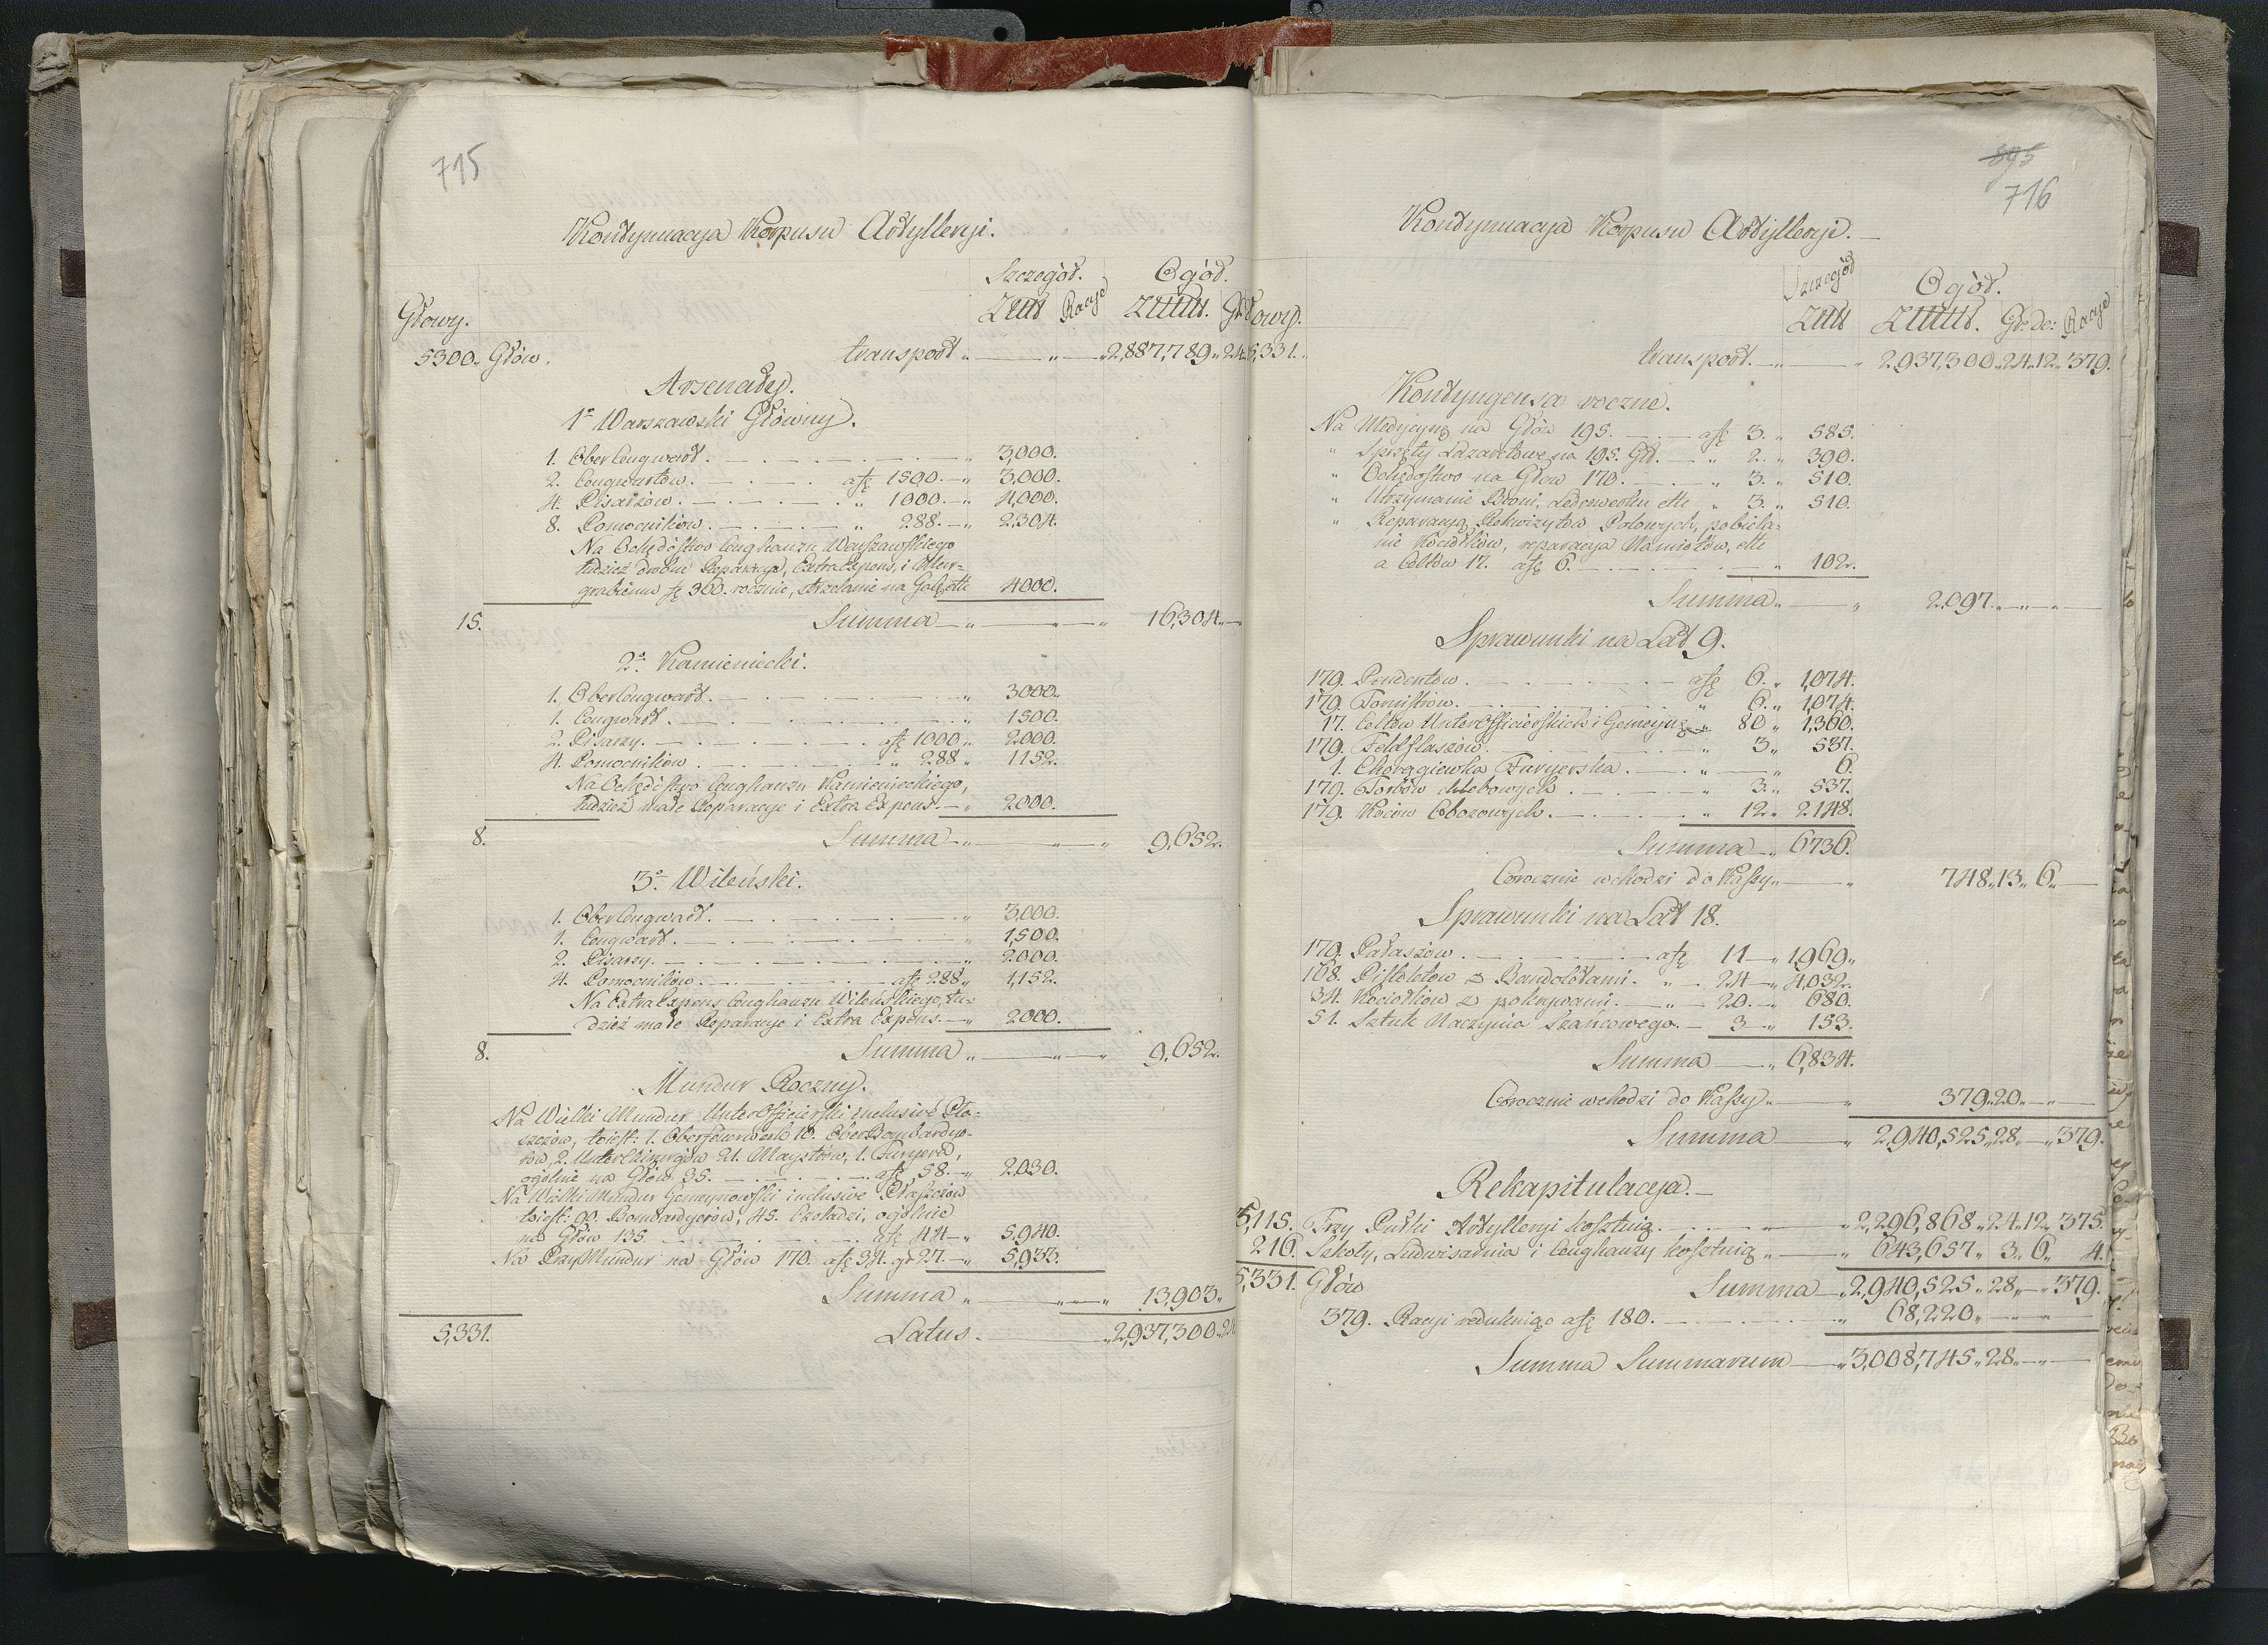 715
Kontynuacya Korpusu Artylleryi.
Szczegół. Ogół.
Głowy. Złłł Racye Złłłł. Gr
5300. Głów. transport 2,887,789. 24
Arsenały.
1o Warszawski Główny.
1. OberCeugwart. 3,000.
2. Ceugwartów. a fł 1500. 3,000.
4. Pisarzów. 1000. 4,000.
8. Pomocników. 288. 2,304.
Na Ochędostwo Ceughauzu Warszawskiego
tudzież drobne Reparacye, Extra Expens, i
fł 360. rocznie, strzelanie na Galę ett 4000.
15. Summa 16,304.
2o Kamieniecki.
1. OberCeugwart. 3000.
1. Ceugwart. 1500.
2. Pisarzy. a fł 1000 2000.
4. Pomocników. 288 1152.
Na Ochędostwo Ceughauzu Kamienieckiego,
tudzież małe Reparacye i Extra Expens. 2000.
8. Summa 9,652.
3o Wileński.
1. OberCeugwart. 3,000.
1. Ceugwart. 1,500.
2. Pisarzy. 2000.
4. Pomocników. a fł 288 1,152.
Na Extra Expens Ceughauzu Wileńskiego, tu-
dzież małe Reparacye i Extra Expens. 2000.
8. Summa 9,652.
Mundur Roczny.
Na Wielki Mundur UnterOfficierski inclusive Pła-
szczów, toiest: 1. Oberfeuerwerk 10. OberBombardye-
rów, 2. Unterchirurgów 21. Maystrów, 1. Furyera,
ogólnie na Głów 35. a fł 58. 2030.
Na Wielki Mundur Gemeynowski inclusive Płaszczów
toiest: 90. Bombardyerów, 45. Czeladzi, ogólnie
na Głów 135. a fł 44 5,940.
Na Pray Mundur na Głów 170. a fł 34. gr 27. 5,933.
Summa 13,903.
5,331. Latus. 2,937,300. 24
895
716
Kontynuacya Korpusu Artylleryi.
Szczegół Ogół.
Głowy. Złłł Złłłł. Gr: de: Racye
5,331. transport. 2,937,300. 24. 12. 379.
Kontyngensa roczne.
Na Medycynę na Głów 195. a fł 3. 585.
" Sprzęty Lazaretowe na 195. Gł. " 2. 390.
" Ochędostwo na Głów 170. " 3. 510.
" Utrzymanie Broni, Lederwerku ett " 3. 510.
" Reparacyą Rekwizytów Polowych, pobiela-
nie Kociołków, reparacya Namiotów, ett
a Celtów 17. a fł 6. 102.
Summa 2,097.
Sprawunki na Lat 9.
179. Pendentów. a fł 6. 1,074.
179. Tornistrów. " 6. 1,074.
17. Celtów UnterOfficierskich i Gemeyn: " 80 1,360.
179. Feldflaszów. " 3 537.
1. Chorągiewka Furyerska. 6.
179. Torbów chlebowych. " 3. 537.
179. Koców Obozowych. " 12 2148.
Summa 6736.
Corocznie wchodzi do Kassy 748. 13. 6.
Sprawunki na Lat 18.
179. Pałaszów. a fł 11 1,969.
168. Pistoletów z Bandoletami. " 24 4,032.
34. Kociołków z pokrywami. " 20. 680.
51. Sztuk Naczynia Szańcowego. 3 153.
Summa 6,834.
Corocznie wchodzi do Kassy 379. 20.
Summa 2,940,525. 28. 379.
Rekapitulacya.
5,115. Trzy Pułki Artylleryi kosztuią. 2,296,868. 24. 12. 375.
216. Szkoły, Ludwisarnia i Ceughauzy kosztuią 643,657. 3. 6. 4.
5,331. Głów Summa 2,940,525. 28. 379.
379. Racyi redukuiąc a fł 180. 68,220.
Summa Summarum 3,008,745. 28.